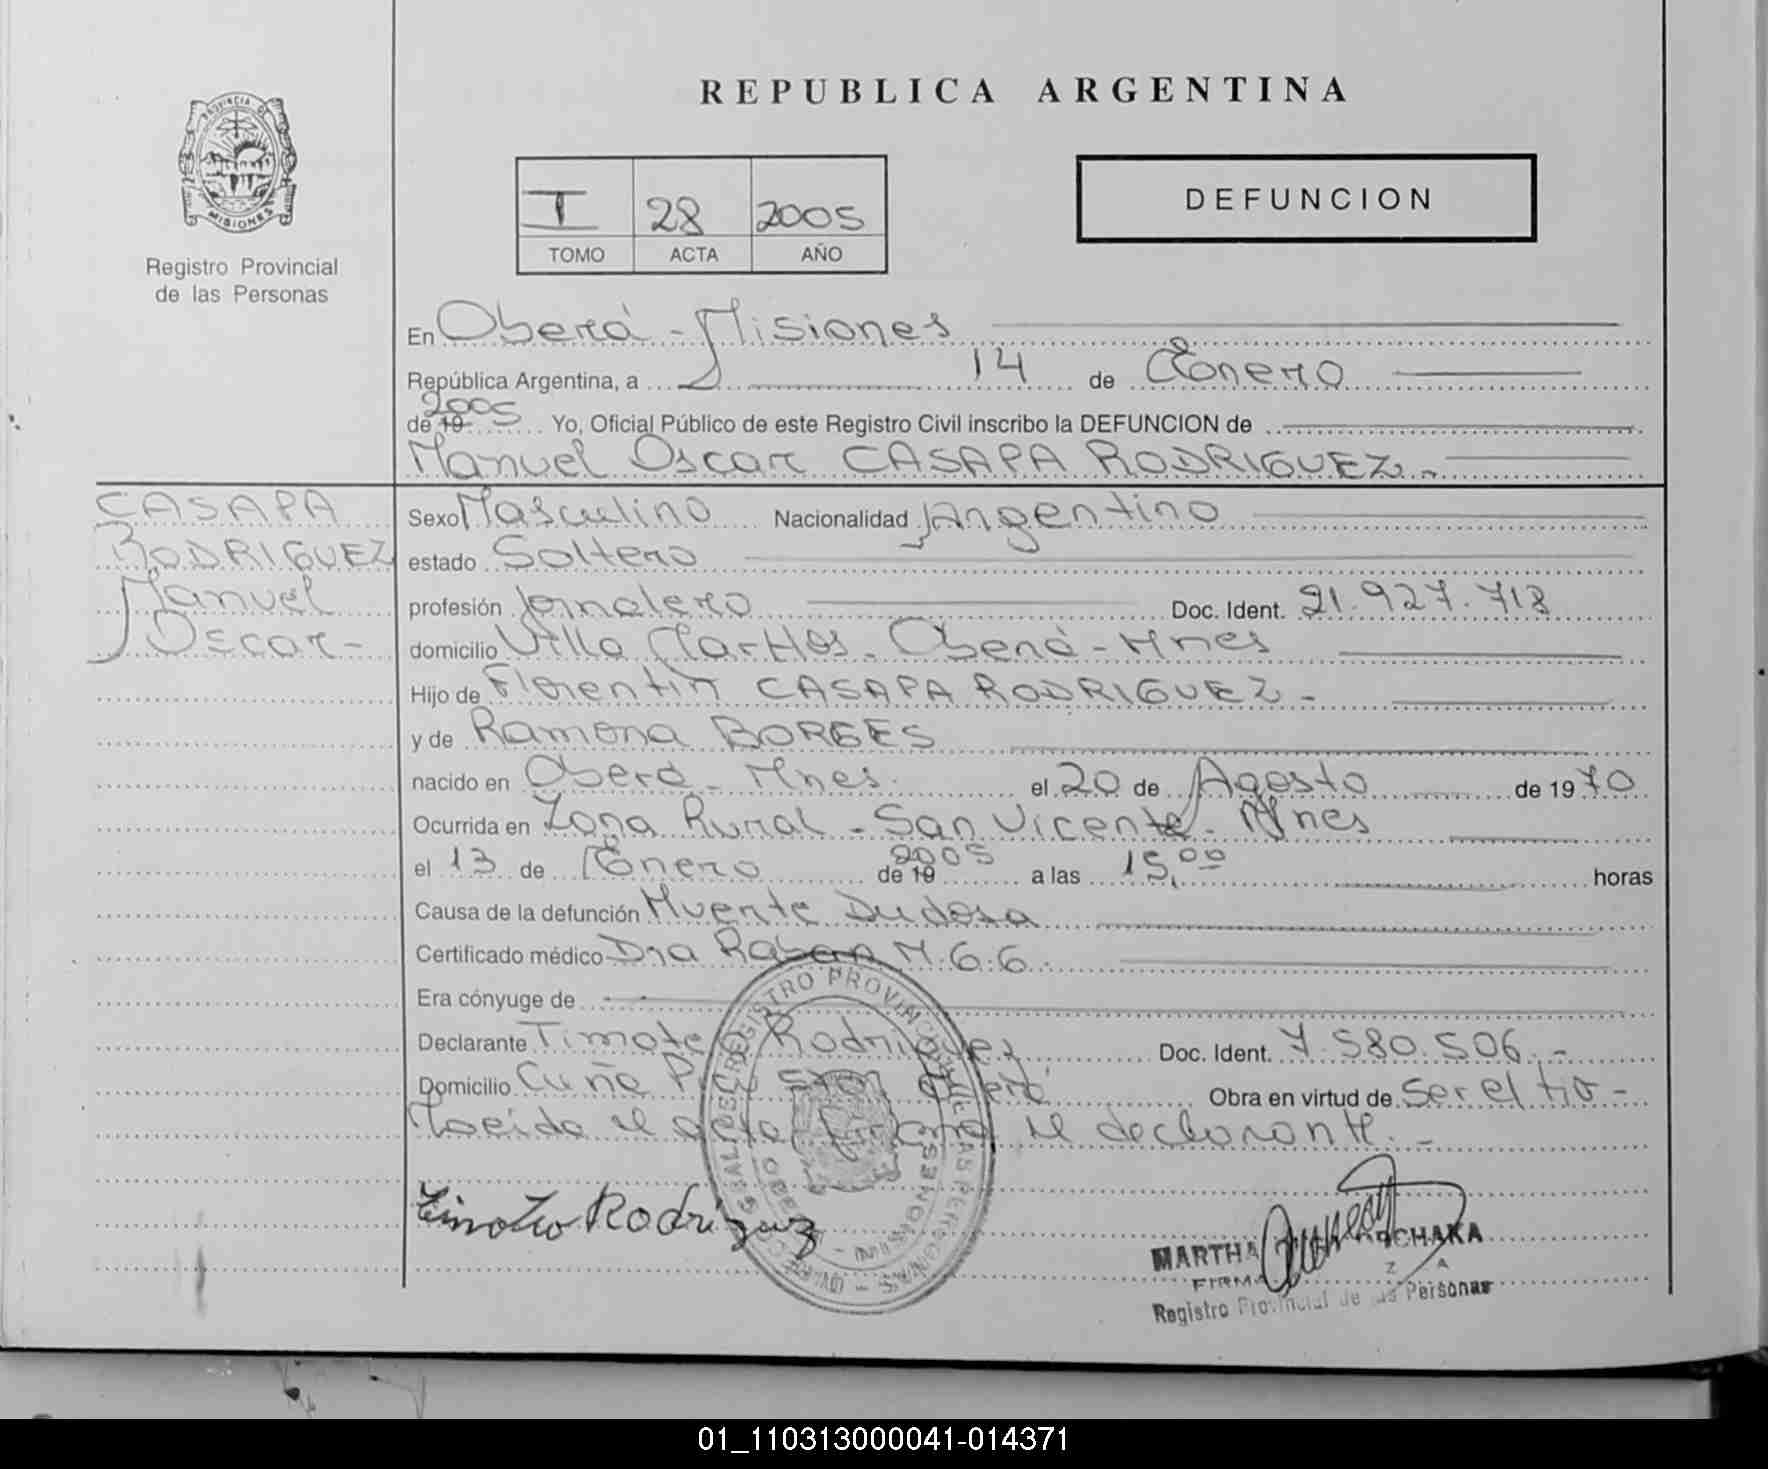 REPUBLICA ARGENTINA
PROVINCIA DE
MISIONES
Registro Provincial
de las Personas
I 28 2005
TOMO ACTA AÑO
DEFUNCION
En Oberá - Misiones
República Argentina, a 14 de Enero
de 19 2005 Yo, Oficial Público de este Registro Civil inscribo la DEFUNCION de
Manuel Oscar CASAPA RODRIGUEZ.-
CASAPA
RODRIGUEZ
Manuel
Oscar-
Sexo Masculino Nacionalidad Argentino
estado Soltero
profesión Jornalero Doc. Ident. 21.927.718
domicilio Villa Oberá - Mnes
Hijo de Florentín CASAPA RODRIGUEZ -
y de Ramona BORGES
nacido en Oberá - Mnes. el 20 de Agosto de 1970
Ocurrida en Zona Rural - San Vicente - Mnes
el 13 de Enero de 19 2005 a las 15,00 horas
Causa de la defunción Muerte Dudosa
Certificado médico Dra M.G.6.
Era cónyuge de
Declarante Timoteo Rodriguez Doc. Ident. 7.580.506.-
Domicilio Cuña Oberá Obra en virtud de ser el tio -
el acta firma el declarante.-
Timoteo Rodriguez
REGISTRO PROVINCIAL DE LAS PERSONAS
OBERA - MISIONES
MARTHA
FIRMA
Registro Provincial de las Personas
01_110313000041-014371